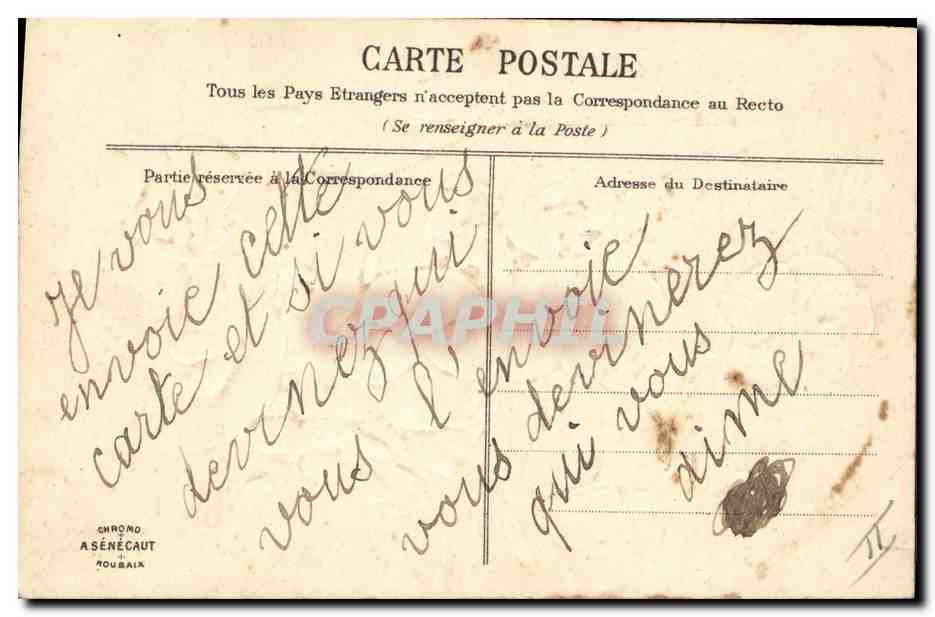 CARTE POSTALE
Tous les Pays Etrangers n'acceptent pas la Correspondance au Recto
(Se renseigner à la Poste)
Partie réservée à la Correspondance
Adresse du Destinataire
je vous
envoie cette
carte et si vous
devrnez qui
vous l'envoie
vous devrnerez
qui vous
aime
CPAPHIL
CHROMO
A SÉNÉCAUT
ROUBAIX
II